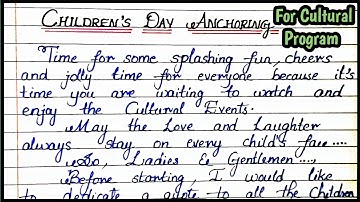 CHILDREN'S DAY ANCHORING
For Cultural
Program
Time for some splashing fun, cheers
and jolly time for everyone because it's
time you are waiting to watch and
enjoy the Cultural Events.
May the Love and Laughter
always stay on every child's face....
So, Ladies & Gentlemen....,
Before starting, I would like
to dedicate a quote to all the Children